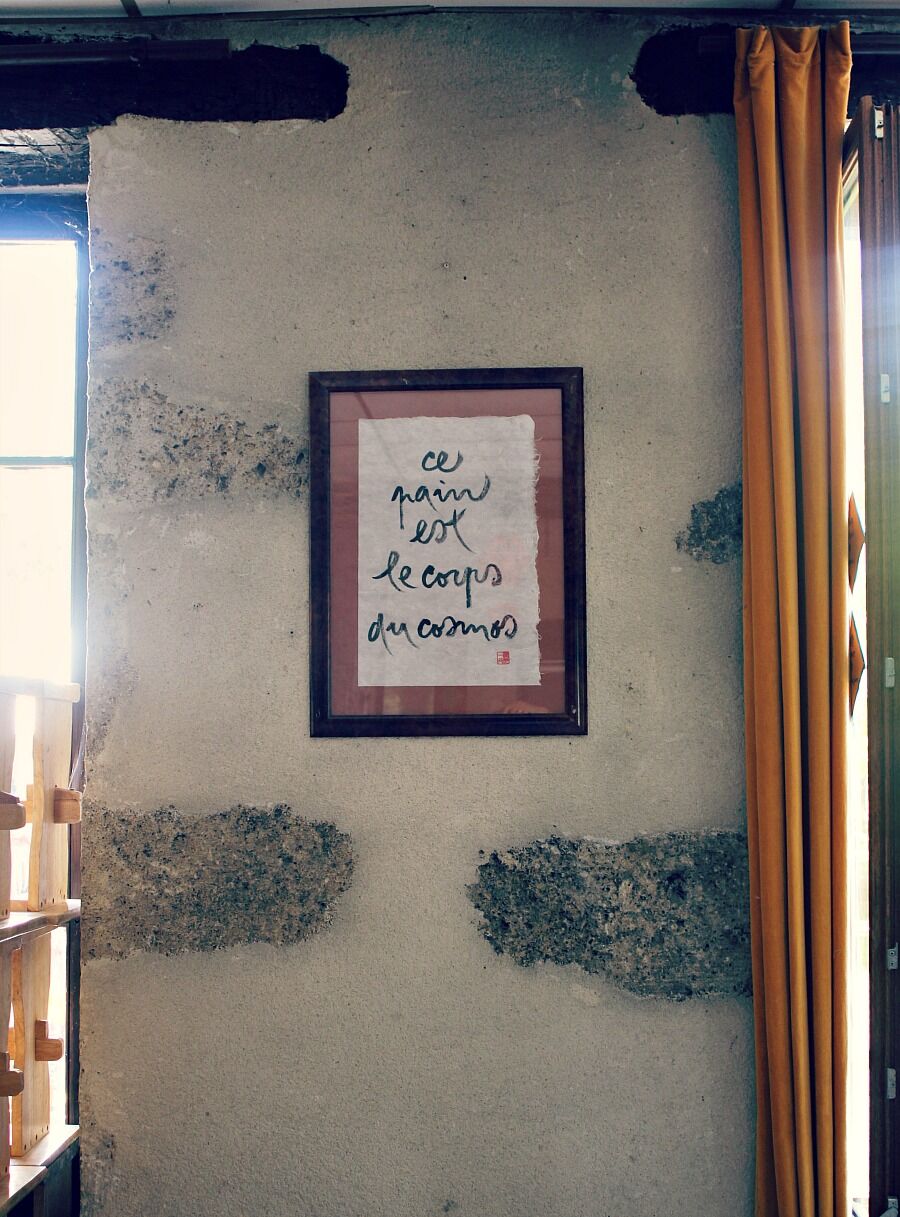 ce
pain
est
le corps
du cosmos